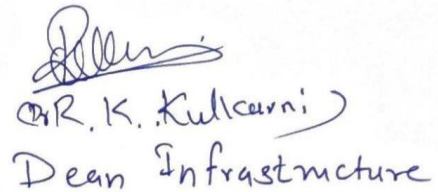 (Dr R. K. Kulkarni)
Dean Infrastructure